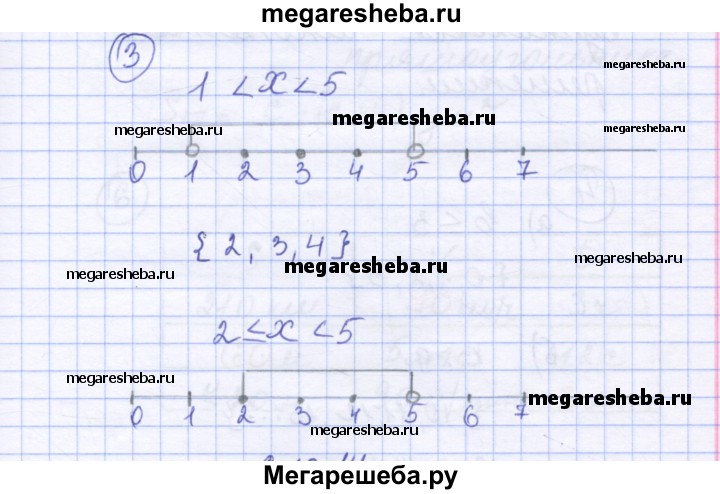 megaresheba.ru
3
1 < x < 5
megaresheba.ru megaresheba.ru megaresheba.ru
0 1 2 3 4 5 6 7
{ 2, 3, 4 }
megaresheba.ru megaresheba.ru megaresheba.ru
2 ≤ x < 5
megaresheba.ru megaresheba.ru
0 1 2 3 4 5 6 7
megaresheba.ru
Мегарешеба.ру